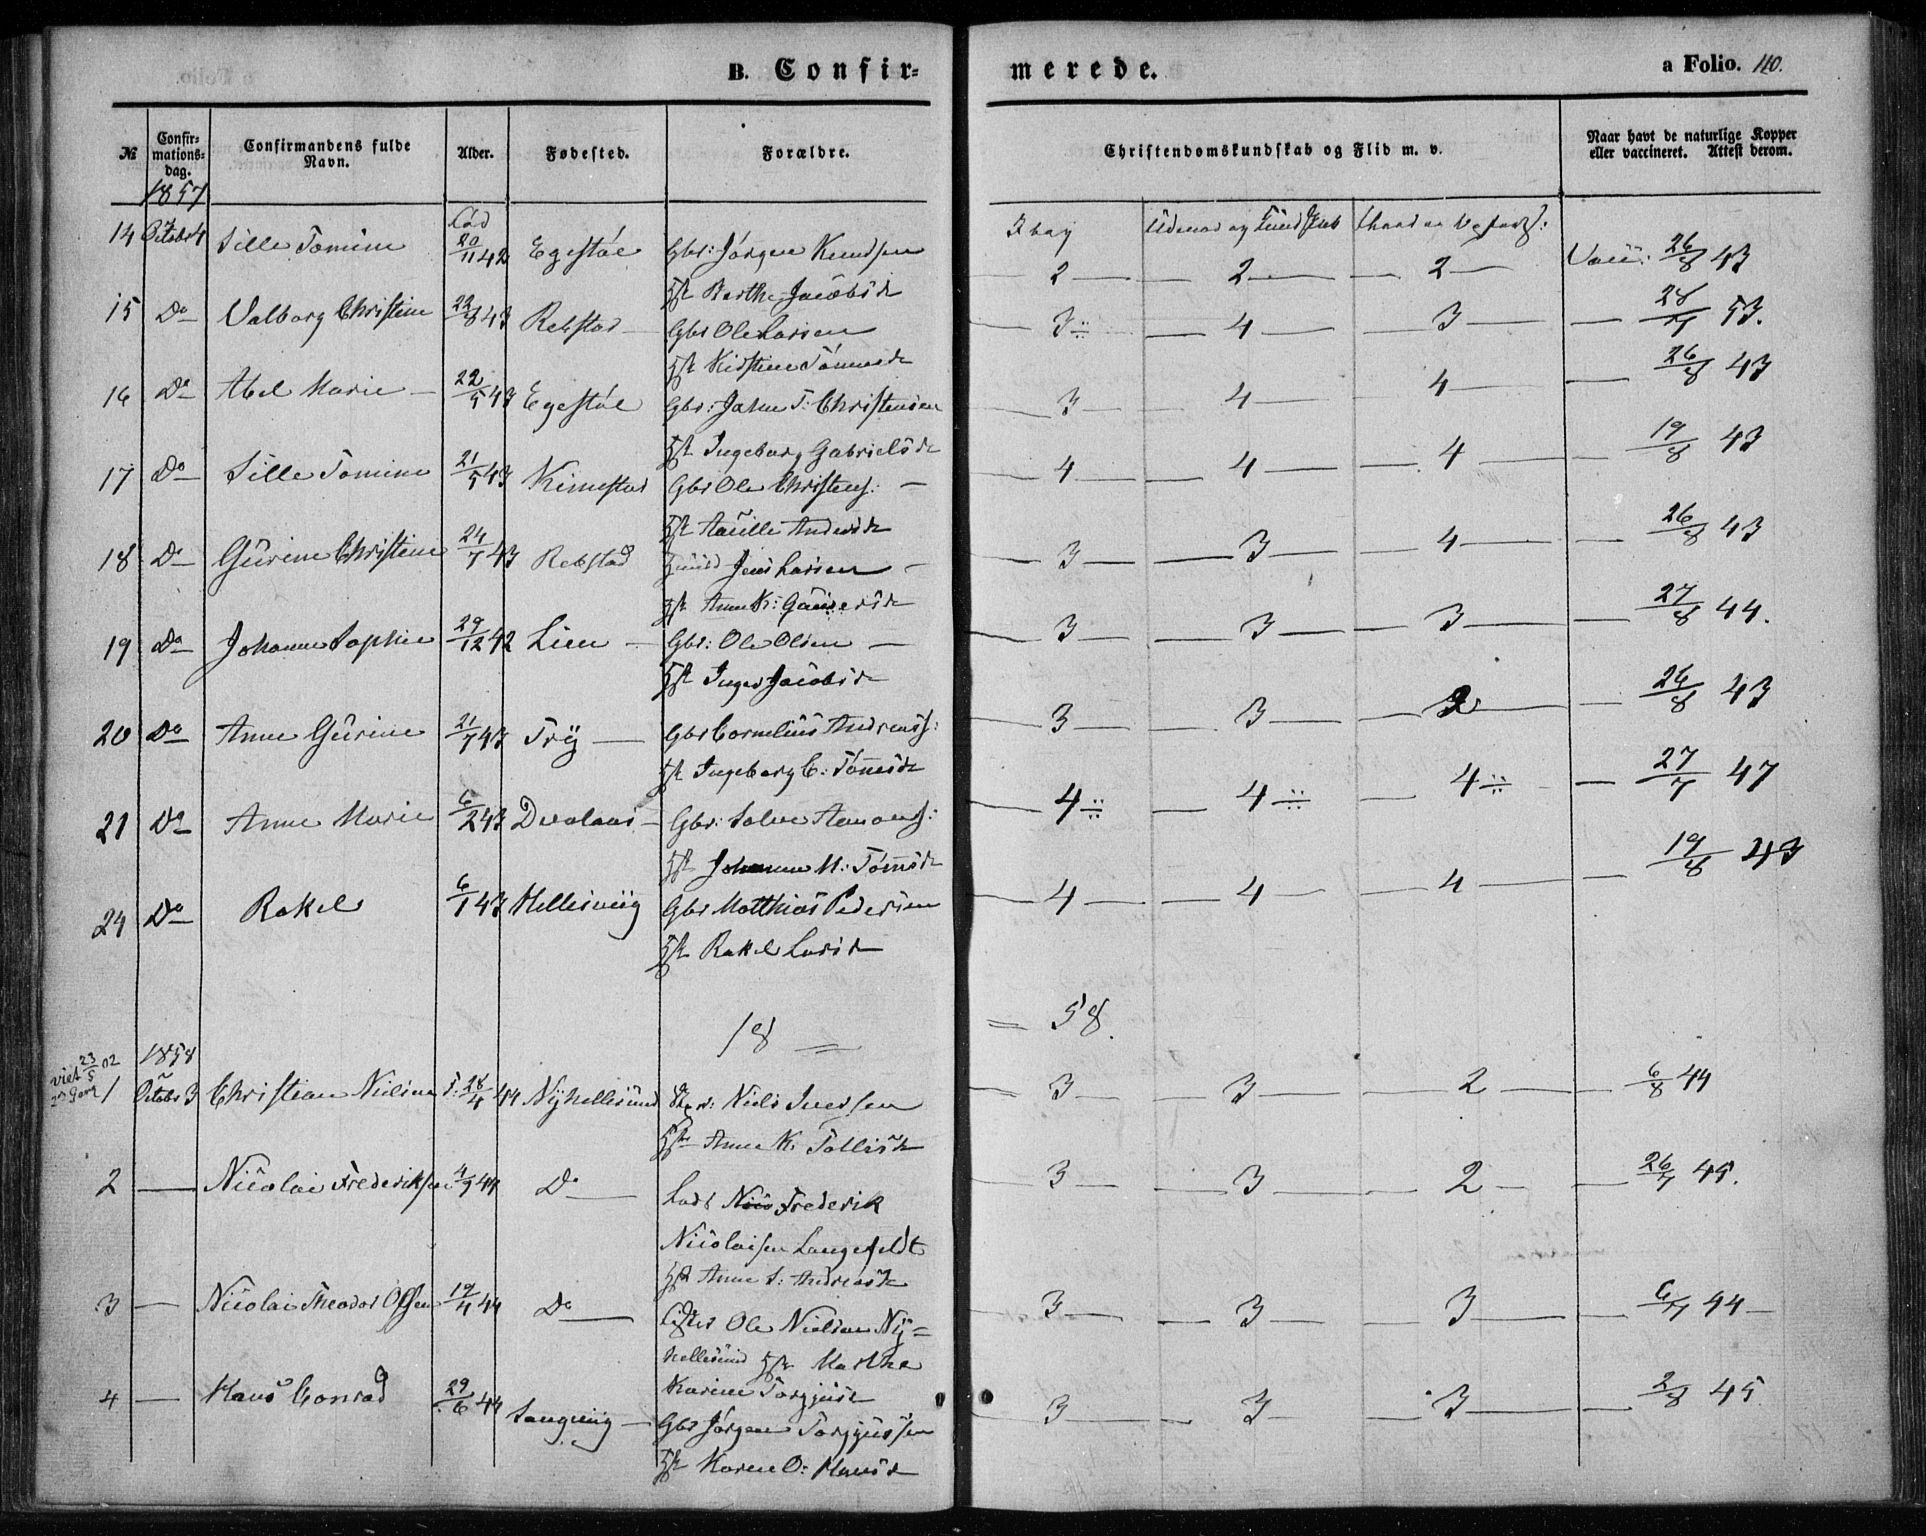 B. Confir=
merede.
a Folio. 110.
№
Confir=
mations=
dag.
Confirmandens fulde
Navn.
Alder.
Fødested.
Forældre.
Christendomskundskab og Flid m. v.
Naar havt de naturlige Kopper
eller vaccineret. Attest derom.
1857
14 Octobr 4 Sille Tomine fød 20/11 42 Egestøe Gbr: Jørgen Knudsen 2 2 2 Vacc: 26/8 43
Hst Berthe Jacobsdr
15 Do Valborg Christine 22/8 43 Rebstad Gbr Ole Larsen 3÷ 4 3 28/7 53.
Hst Kirstine Tønnesdr
16 Do Abel Marie 22/5 43 Egestøe Gbr: Jahn T: Christensen 3 4 4 26/8 43
Hst Ingeborg Gabrielsdr
17 Do Sille Tomine 21/5 43 Kimestad Gbr Ole Christens: 4 4 4 19/8 43
Hst Aasille Andersdr
18 Do Gurine Christine 24/7 43 Rebstad Jens Larsen 3 3 4 26/8 43
Hst Anne K:
19 Do Johanne Sophie 29/12 42 Lien Gbr: Ole Olsen 3 3 3 27/8 44.
Hst Inger Jacobsdr
20 Do Anne Gurine 21/7 43 Try Gbr Cornelius Andreass: 3 3 2 26/8 43
Hst Ingeborg C: Tønnesdr
21 Do Anne Marie 6/2 43 Gbr: Salve Aamons: 4÷ 4÷ 4÷ 27/7 47
Hst Johanne M: Tønnesdr
24 Do Rakel 6/1 43 Hellesviig Gbr Matthias Pedersen 4 4 4 19/8 43
Hst Rakel Larsdr
18 =
= 58.
viet 23/5 02
2den Gang
1858
1 Octobr 3 Christian Nielsen f: 28/4 44 Nyhellesund Niels Iversen 3 3 2 6/8 44
Hst Anne K. Tollisdr
2 Nicolai Frederiksen 4/9 44 Do Lods Frederik 3 3 2 26/7 45.
Nicolaisen Langefeldt
Hst Anne S: Andreasdr
3 Nicolai Theodor Olsen 19/4 44 Do Ole Nielsen Ny= 3 3 3 6/7 44
hellesund Hst Marthe
Karine Torgjusdr
4 Hans Conrad 29/6 44 Langviig Gbr Jørgen Torgjussen 3 3 3 2/8 45
Hst Karen O: Hansdr